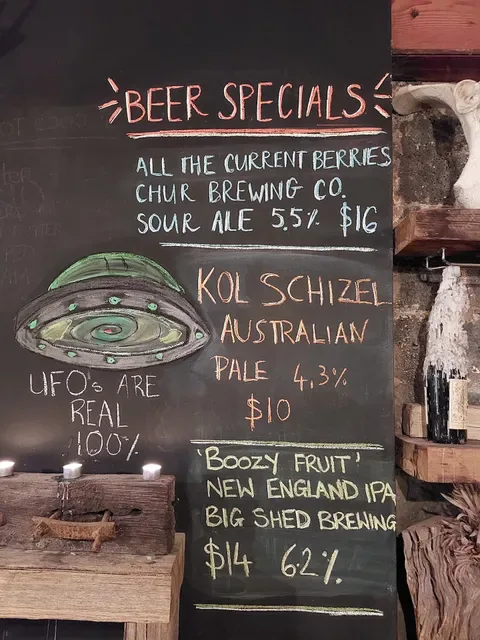 BEER SPECIALS
ALL THE CURRENT BERRIES
CHUR BREWING CO.
SOUR ALE 5.5% $16
KOL SCHIZEL
AUSTRALIAN
PALE 4.3%
$10
UFO's ARE
REAL
100%
'BOOZY FRUIT'
NEW ENGLAND IPA
BIG SHED BREWING
$14 6.2%